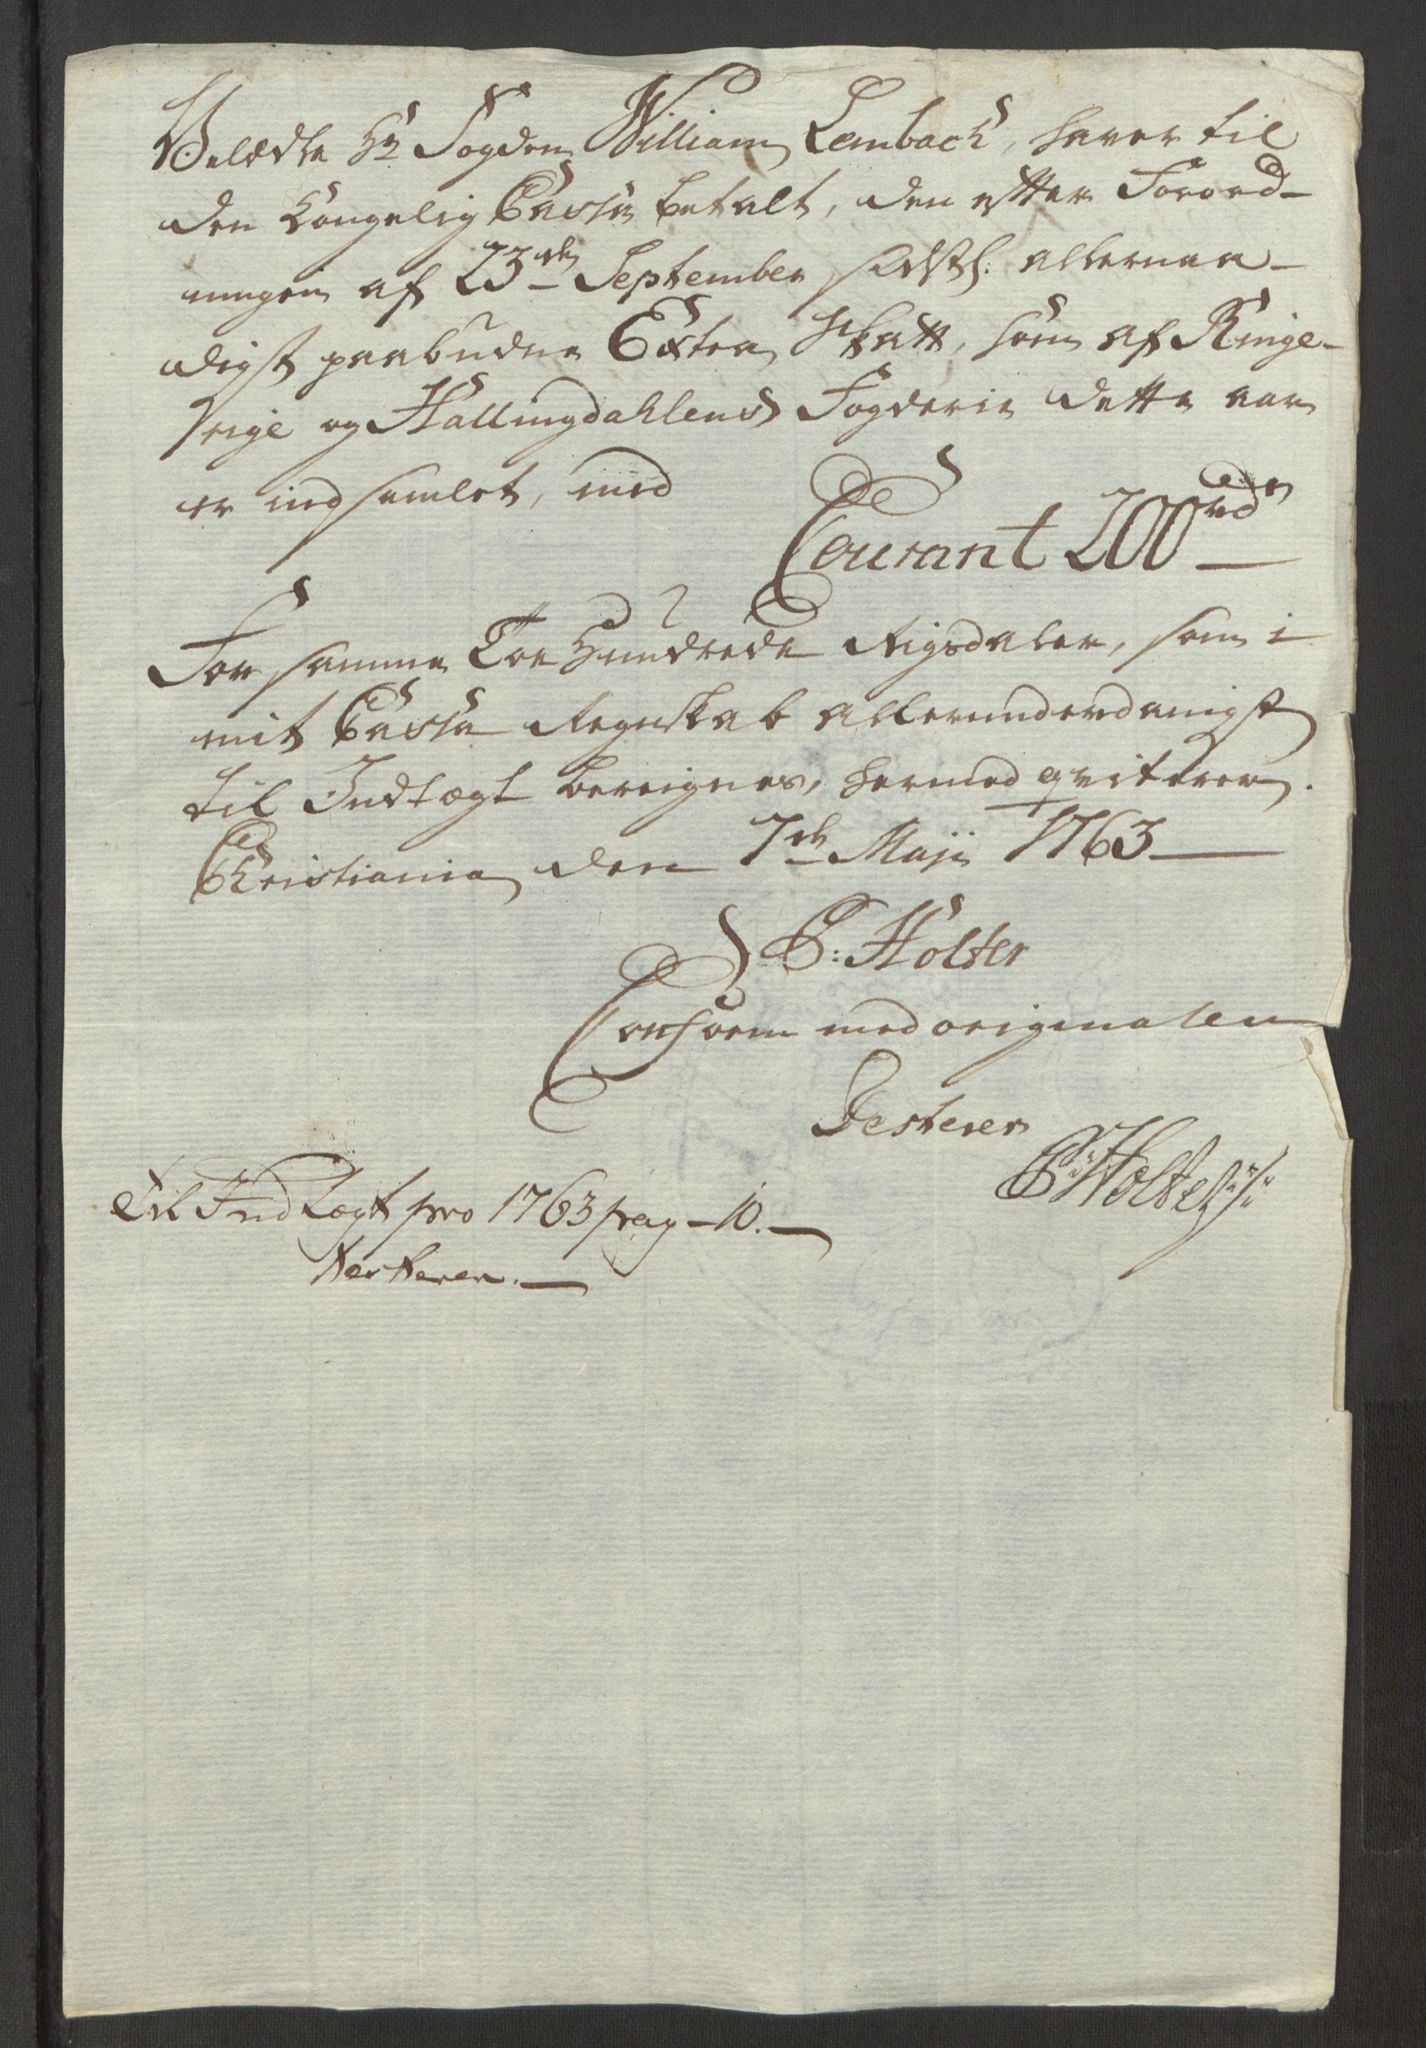 Velædle Hr Fogden William Lembach, haver til
den Kongelig Cassa betalt, den efter Forord-
ningen af 23de September sidstl: allernaa-
digst paabudne Extra Skatt, som af Ringe-
rige og Hallingdahlens Fogderie dette aar
er indsamlet, med
Courant 200rdr
For samme Toe Hundrede Rigsdaler, som i
mit Cassa Regnskab allerunderdanigst
til Indtægt bereignes, hermed qviterer.
Christiania den 7de Maji 1763
C: Holter
Conform med originalen
Testerer
C: Holter
Til IndTægt pro 1763 pag - 10.
testerer.